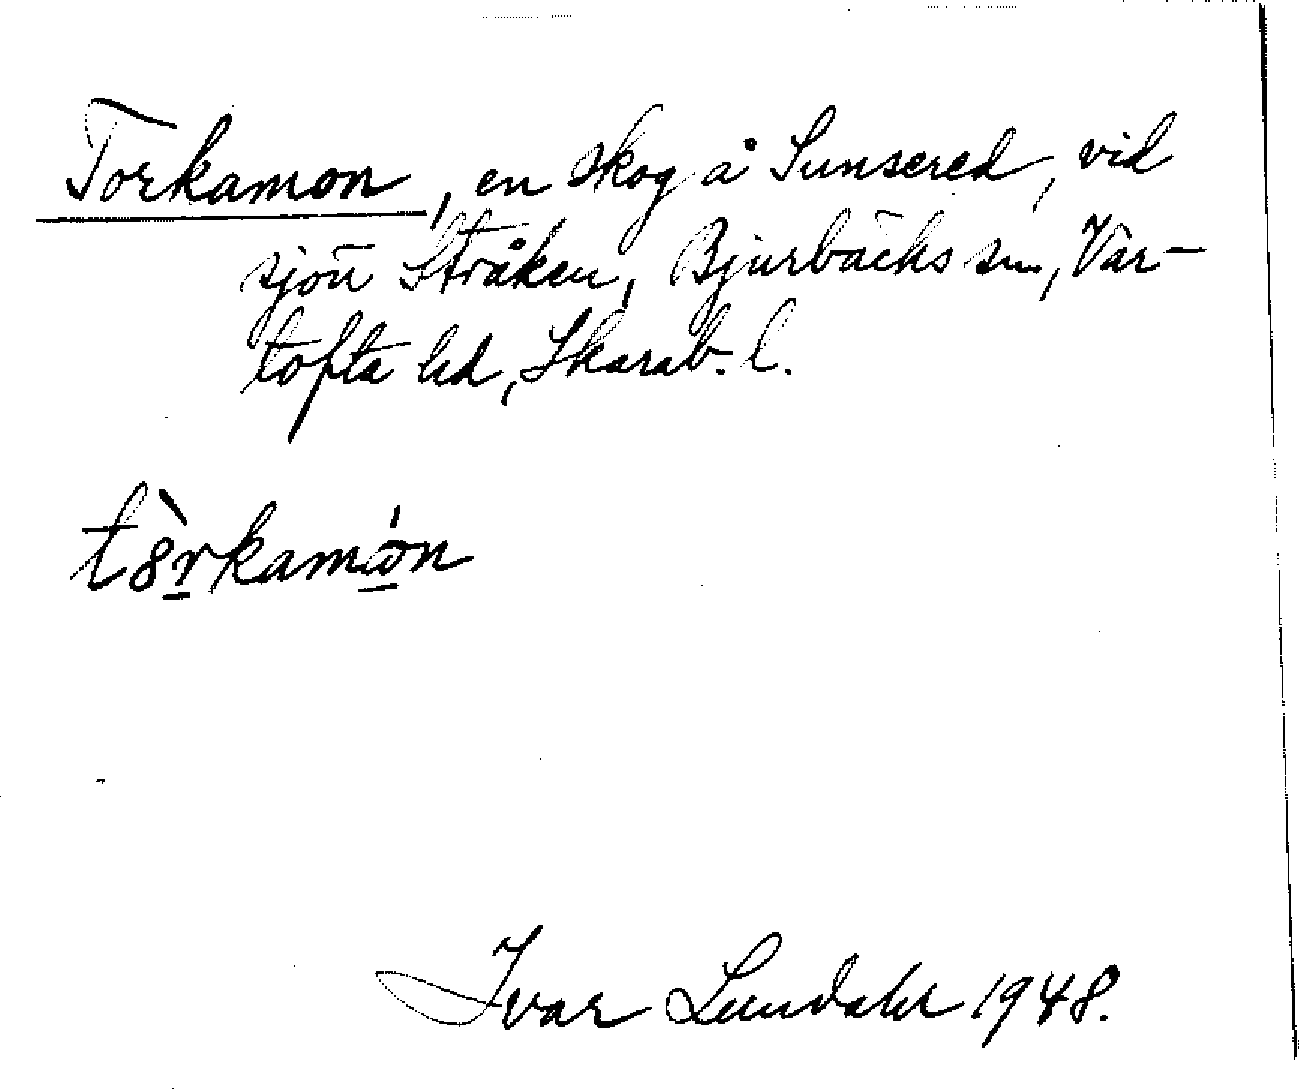 Torkamon, en skog å Sunsered, vid
sjön Stråken, Bjurbäcks sn, Var-
tofta hd, Skarab. l.
tȣ̀rkamón
Ivar Lundahl 1948.